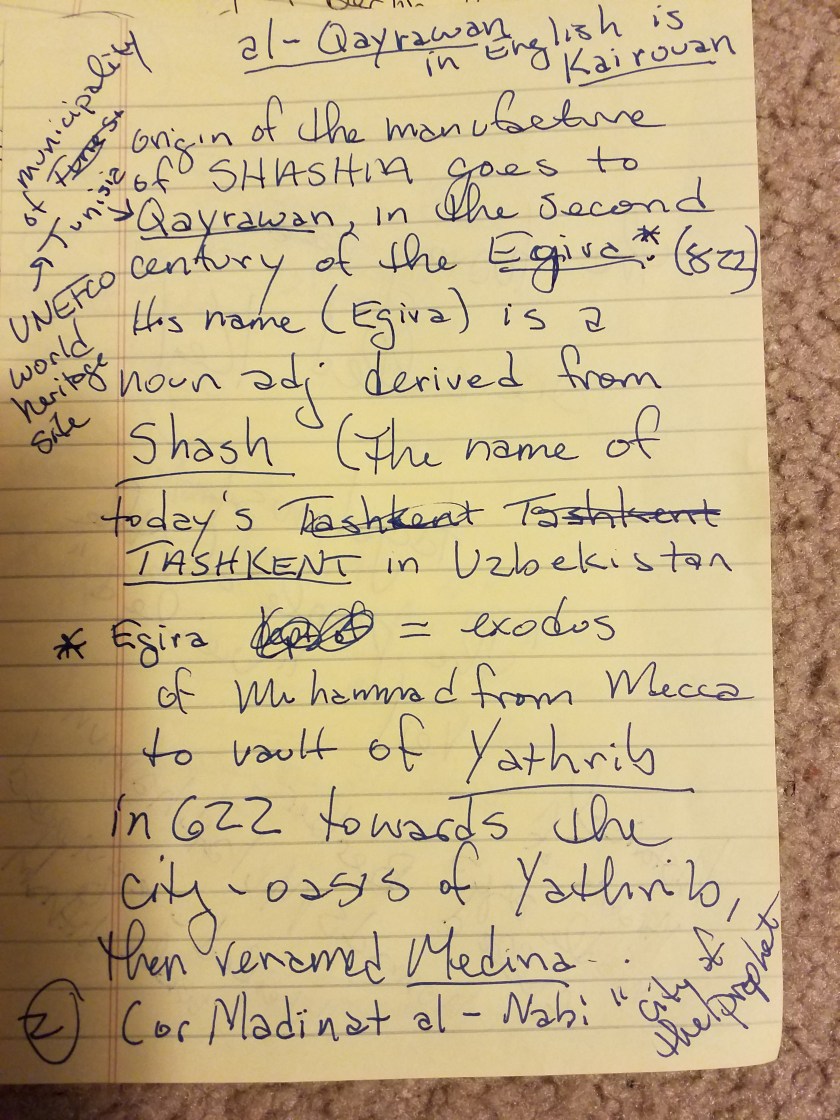 al-Qayrawan
in English is
Kairouan
municipality
of Tunisia
↗
UNESCO
world
heritage
site
origin of the manufacture
of SHASHIA goes to
Qayrawan, in the second
century of the Egira*. (822)
His name (Egira) is a
noun adj derived from
Shash (The name of
today's Tashkent Tashkent
TASHKENT in Uzbekistan
* Egira = exodus
of Muhammad from Mecca
to vault of Yathrib
in 622 towards the
city-oasis of Yathrib,
then renamed Medina..
(or Madinat al-Nabi "city of
the prophet
2